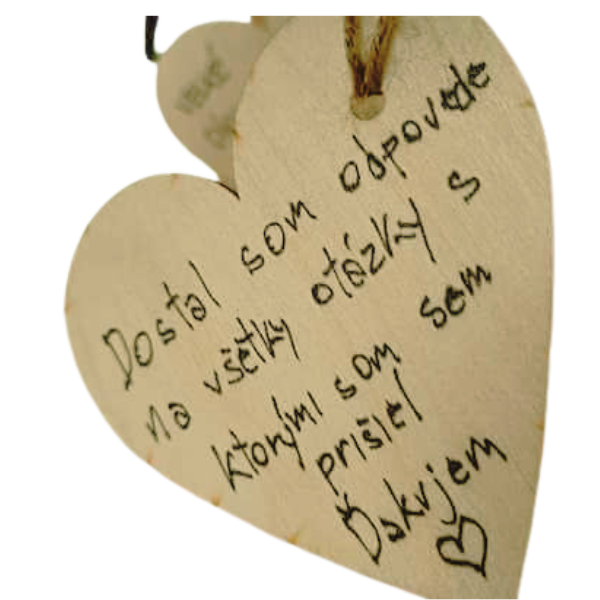 Dostal som odpovede
na všetky otázky s
ktorými som sem
prišiel
Ďakujem